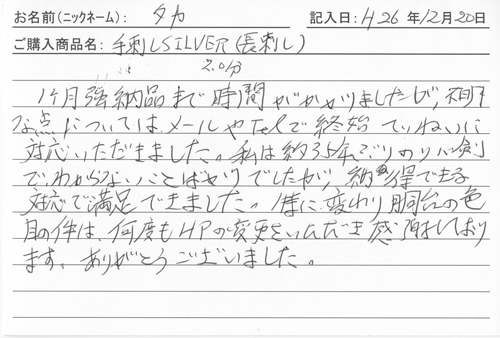 お名前(ニックネーム): タカ 記入日: H26年12月20日
ご購入商品名: 手刺しSILVER(長刺し)
2.0分
1ヶ月強納品まで時間がかかりましたが、不明
な点についてはメールやTelで終始ていねいに
対応いただきました。私は約35年ぶりのリバ剣
でわからないことばかりでしたが、納得できる
対応で満足できました。特に変わり胴台の色
目の件は、何度もHPの変更をいただき感謝しており
ます。ありがとうございました。